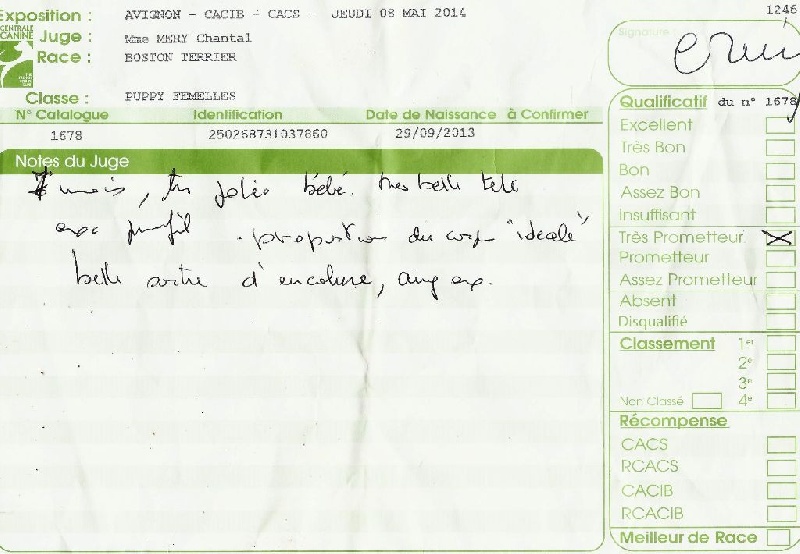 1246
Exposition : AVIGNON - CACIB - CACS JEUDI 08 MAI 2014
CENTRALE
CANINE
Juge : Mme MERY Chantal
Race : BOSTON TERRIER
Signature
Classe : PUPPY FEMELLES
N° Catalogue Identification Date de Naissance à Confirmer
1678 250268731037860 29/09/2013
Notes du Juge
7 mois, très jolie bébé. très belle tête
profil . proportion du corps "idéale"
belle sortie d'encolure,
Qualificatif du n° 1678
Excellent
Très Bon
Bon
Assez Bon
Insuffisant
Très Prometteur X
Prometteur
Assez Prometteur
Absent
Disqualifié
Classement 1er
2e
3e
Non Classé 4e
Récompense
CACS
RCACS
CACIB
RCACIB
Meilleur de Race